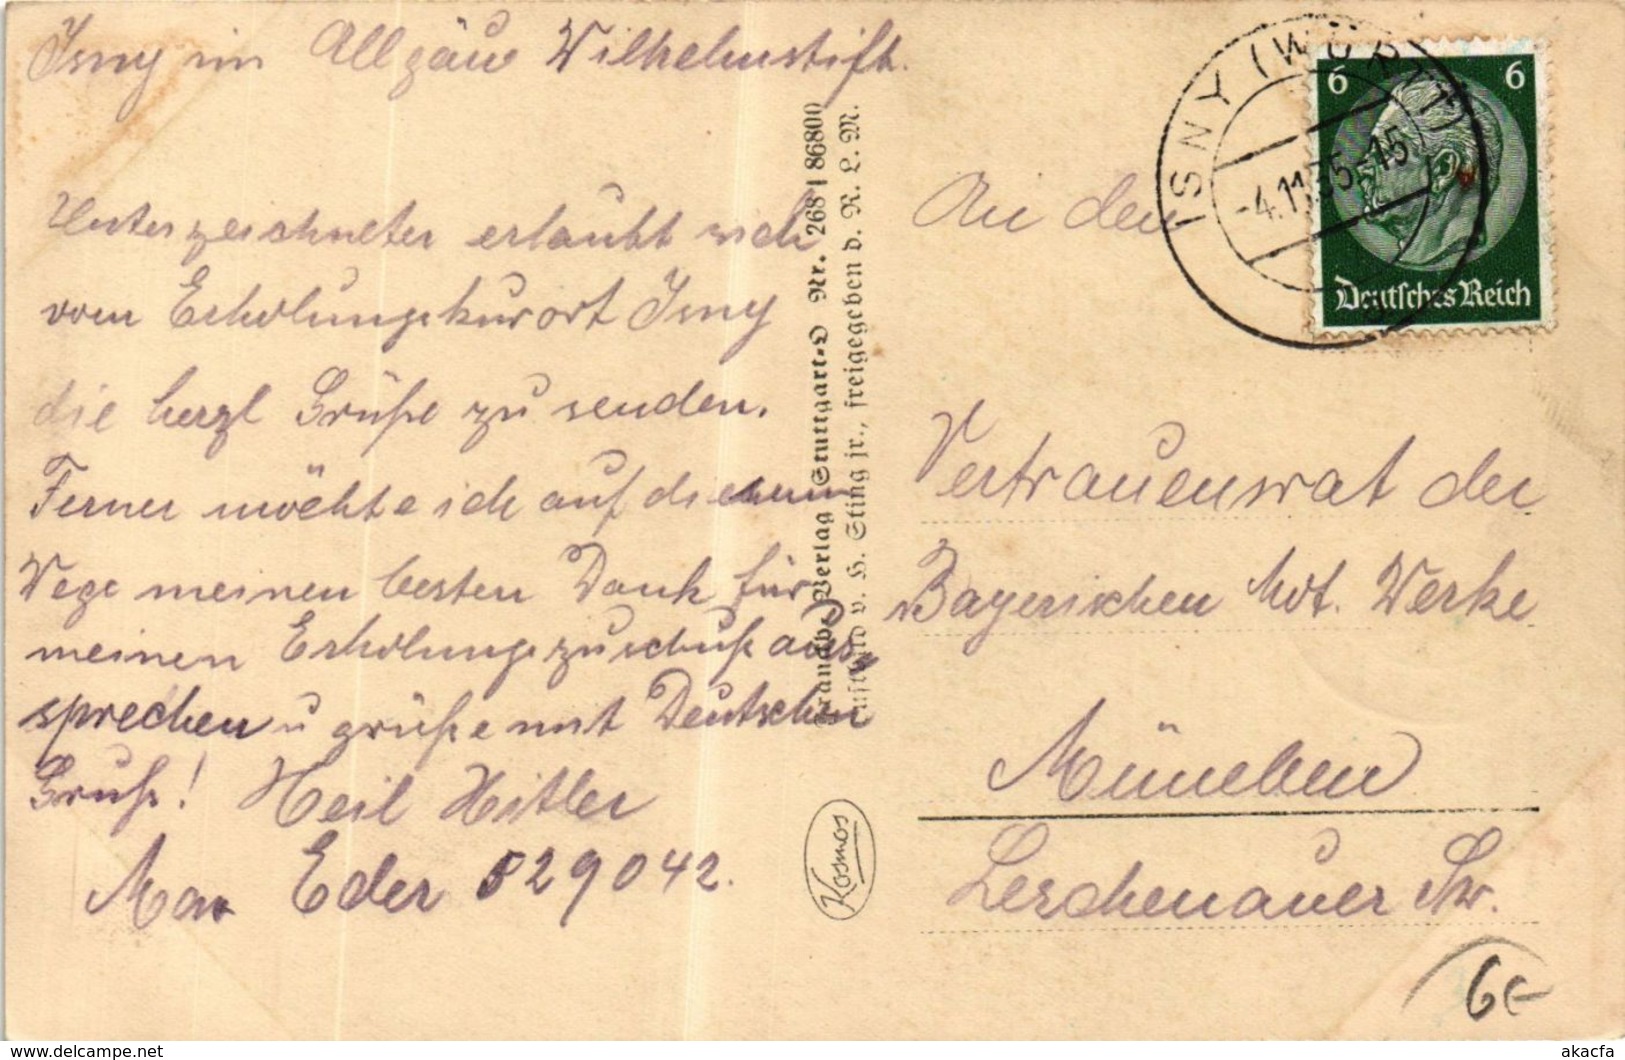 Isny im Allgäu Wilhelmstift.
Unterzeichneter erlaubt sich
vom Erholungskurort Isny
die herzl Grüße zu senden.
Ferner möchte ich auf diesem
Wege meinen besten Dank für
meinen Erholungszuschuß aus-
sprechen u grüße mit Deutschen
Gruß! Heil Hitler
Max Eder 529042.
Verlag Stuttgart-O Nr. 268 | 86800
v. H. Sting jr., freigegeben d. R. L. M.
Kosmos
ISNY (WÜRTT)
-4.11.35.-15
6 6
Deutsches Reich
An den
Vertrauensrat der
Bayerischen Mot. Werke
München
Lerchenauer Str.
6€
akacfa